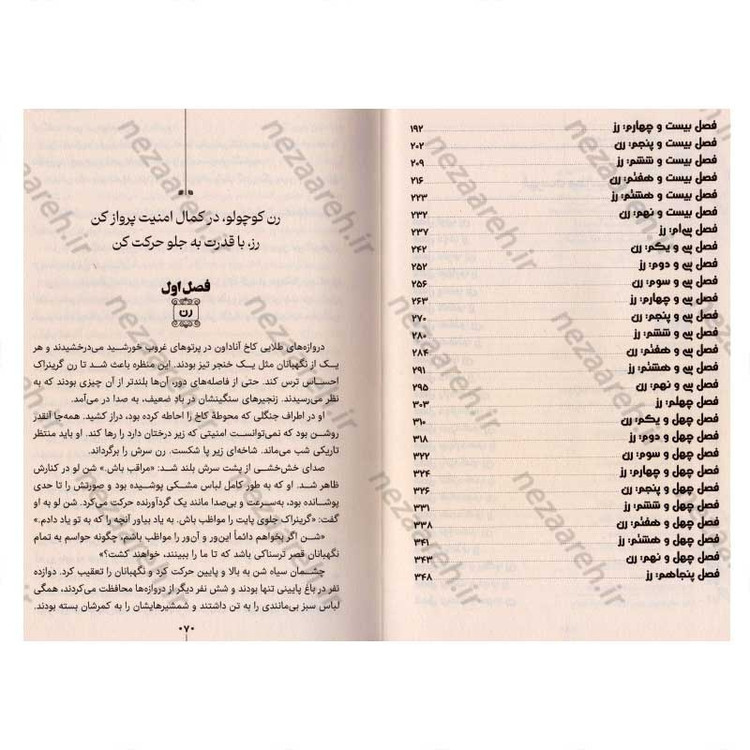 فصل بیست و چهارم: رز ۱۹۲
فصل بیست و پنجم: رن ۲۰۲
فصل بیست و ششم: رز ۲۰۹
فصل بیست و هفتم: رن ۲۱۶
فصل بیست و هشتم: رز ۲۲۳
فصل بیست و نهم: رن ۲۳۲
فصل سی‌ام: رز ۲۳۷
فصل سی و یکم: رن ۲۴۲
فصل سی و دوم: رز ۲۵۲
فصل سی و سوم: رن ۲۵۶
فصل سی و چهارم: رز ۲۶۳
فصل سی و پنجم: رن ۲۷۰
فصل سی و ششم: رز ۲۸۰
فصل سی و هفتم: رن ۲۸۴
فصل سی و هشتم: رز ۲۹۱
فصل سی و نهم: رن ۲۹۵
فصل چهلم: رز ۳۰۳
فصل چهل و یکم: رن ۳۱۰
فصل چهل و دوم: رز ۳۱۸
فصل چهل و سوم: رن ۳۲۲
فصل چهل و چهارم: رز ۳۲۴
فصل چهل و پنجم: رن ۳۲۶
فصل چهل و ششم: رز ۳۳۱
فصل چهل و هفتم: رن ۳۳۸
فصل چهل و هشتم: رز ۳۴۱
فصل چهل و نهم: رن ۳۴۳
فصل پنجاهم: رز ۳۴۸
رن کوچولو، در کمال امنیت پرواز کن
رز، با قدرت به جلو حرکت کن
فصل اول
رن
دروازه‌های طلایی کاخ آناداون در پرتوهای غروب خورشید می‌درخشیدند و هر
یک از نگهبانان مثل یک خنجر تیز بودند. این منظره باعث شد تا رن گرینراک
احساس ترس کند. حتی از فاصله‌های دور، آن‌ها بلندتر از آن چیزی بودند که به
نظر می‌رسیدند. زنجیرهای سنگینشان در باد ضعیف، به صدا در می‌آمد.
او در اطراف جنگلی که محوطهٔ کاخ را احاطه کرده بود، دراز کشید. همه‌جا آنقدر
روشن بود که نمی‌توانست امنیتی که زیر درختان دارد را رها کند. او باید منتظر
تاریکی شب می‌ماند. شاخه‌ای زیر پا شکست. رن سرش را برگرداند.
صدای خش‌خشی از پشت سرش بلند شد: «مراقب باش.» شن لو در کنارش
ظاهر شد. او که به طور کامل لباس مشکی پوشیده بود و صورتش را تا حدی
پوشانده بود، به‌سرعت و بی‌صدا مانند یک گردآورنده حرکت می‌کرد. شن لو به او
گفت: «گرینراک جلوی پایت را مواظب باش. به یاد بیاور آنچه را که به تو یاد دادم.»
«شن اگر بخواهم دائماً این‌ور و آن‌ور را مواظب باشم، چگونه حواسم به تمام
نگهبانان قصر ترسناکی باشد که تا ما را ببینند، خواهند کشت؟»
چشمان سیاه شن به بالا و پایین حرکت کرد و نگهبانان را تعقیب کرد. دوازده
نفر در باغ پایینی تنها بودند و شش نفر دیگر از دروازه‌ها محافظت می‌کردند، همگی
لباس سبز بی‌مانندی را به تن داشتند و شمشیرهایشان را به کمرشان بسته بودند.
۰۷۰
nezaareh.ir
nezaareh.ir
nezaareh.ir
nezaareh.ir
nezaareh.ir
nezaareh.ir
nezaareh.ir
nezaareh.ir
nezaareh.ir